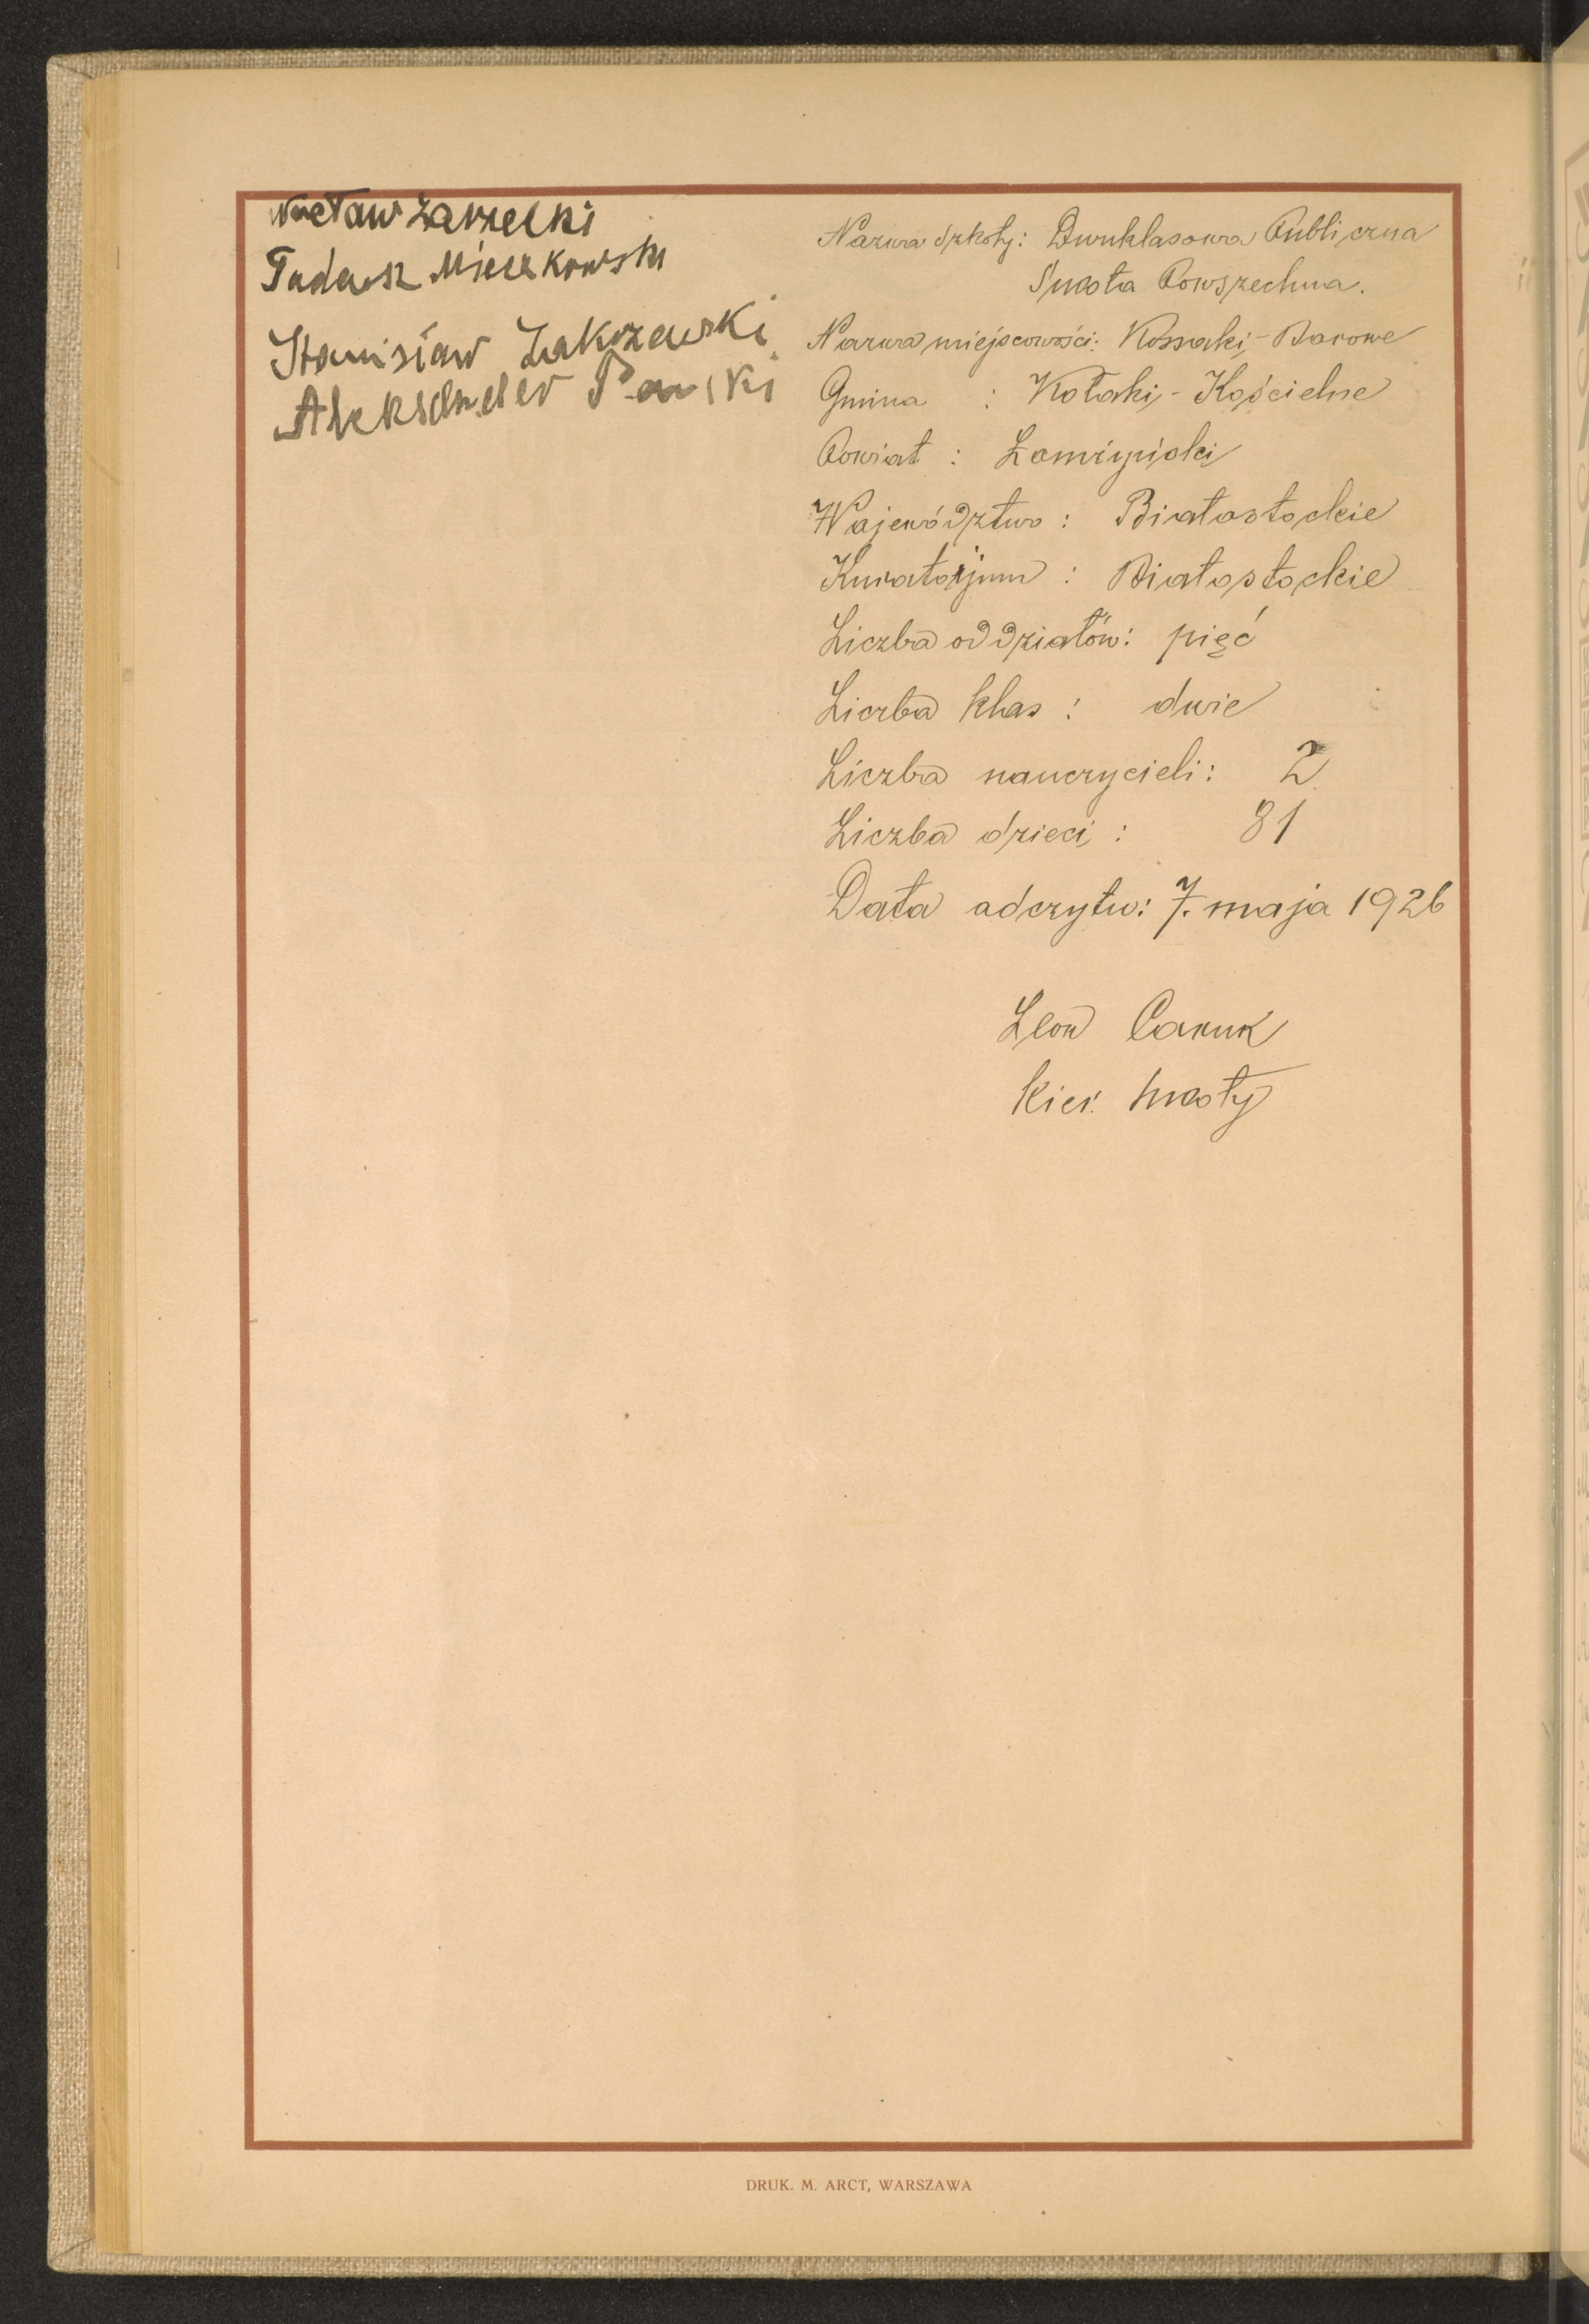 Wacław Zarzecki
Tadeusz Mieczkowski
Stanisław Zakrzewski
Aleksander
Nazwa szkoły: Dwuklasowa Publiczna
Szkoła Powszechna.
Nazwa miejscowości: Kossaki-Borowe
Gmina : Kołaki-Kościelne
Powiat : Łomżyński
Województwo : Białostockie
Kuratorjum : Białostockie
Liczba oddziałów: pięć
Liczba klas : dwie
Liczba nauczycieli: 2
Liczba dzieci : 81
Data odczytu: 7. maja 1926
Leon
Kier. szkoły
DRUK. M. ARCT, WARSZAWA